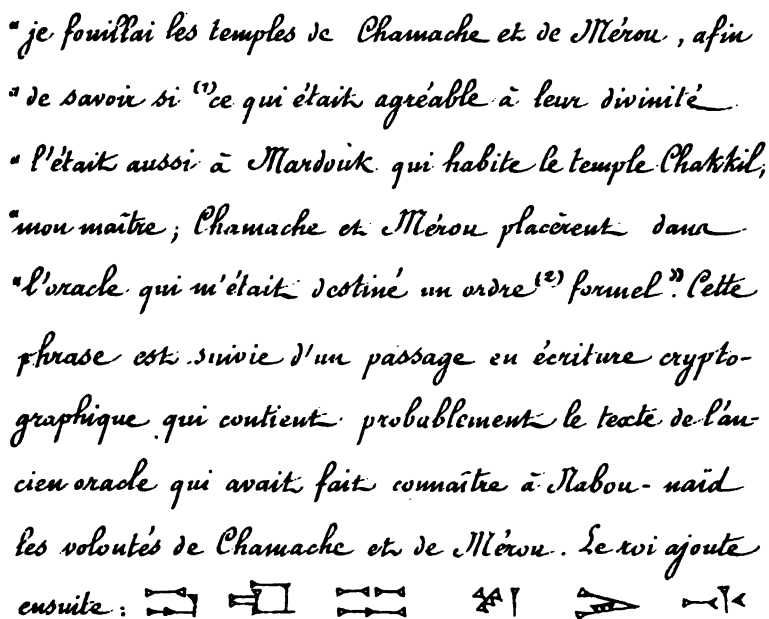 "je fouillai les temples de Chamache et de Mérou, afin
"de savoir si (1) ce qui était agréable à leur divinité
"l'était aussi à Mardouk qui habite le temple Chakkil,
"mon maître; Chamache et Mérou placèrent dans
"l'oracle qui m'était destiné un ordre (2) formel". Cette
phrase est suivie d'un passage en écriture crypto-
graphique qui contient probablement le texte de l'an-
cien oracle qui avait fait connaître à Nabou-naïd
les volontés de Chamache et de Mérou. Le roi ajoute
ensuite :